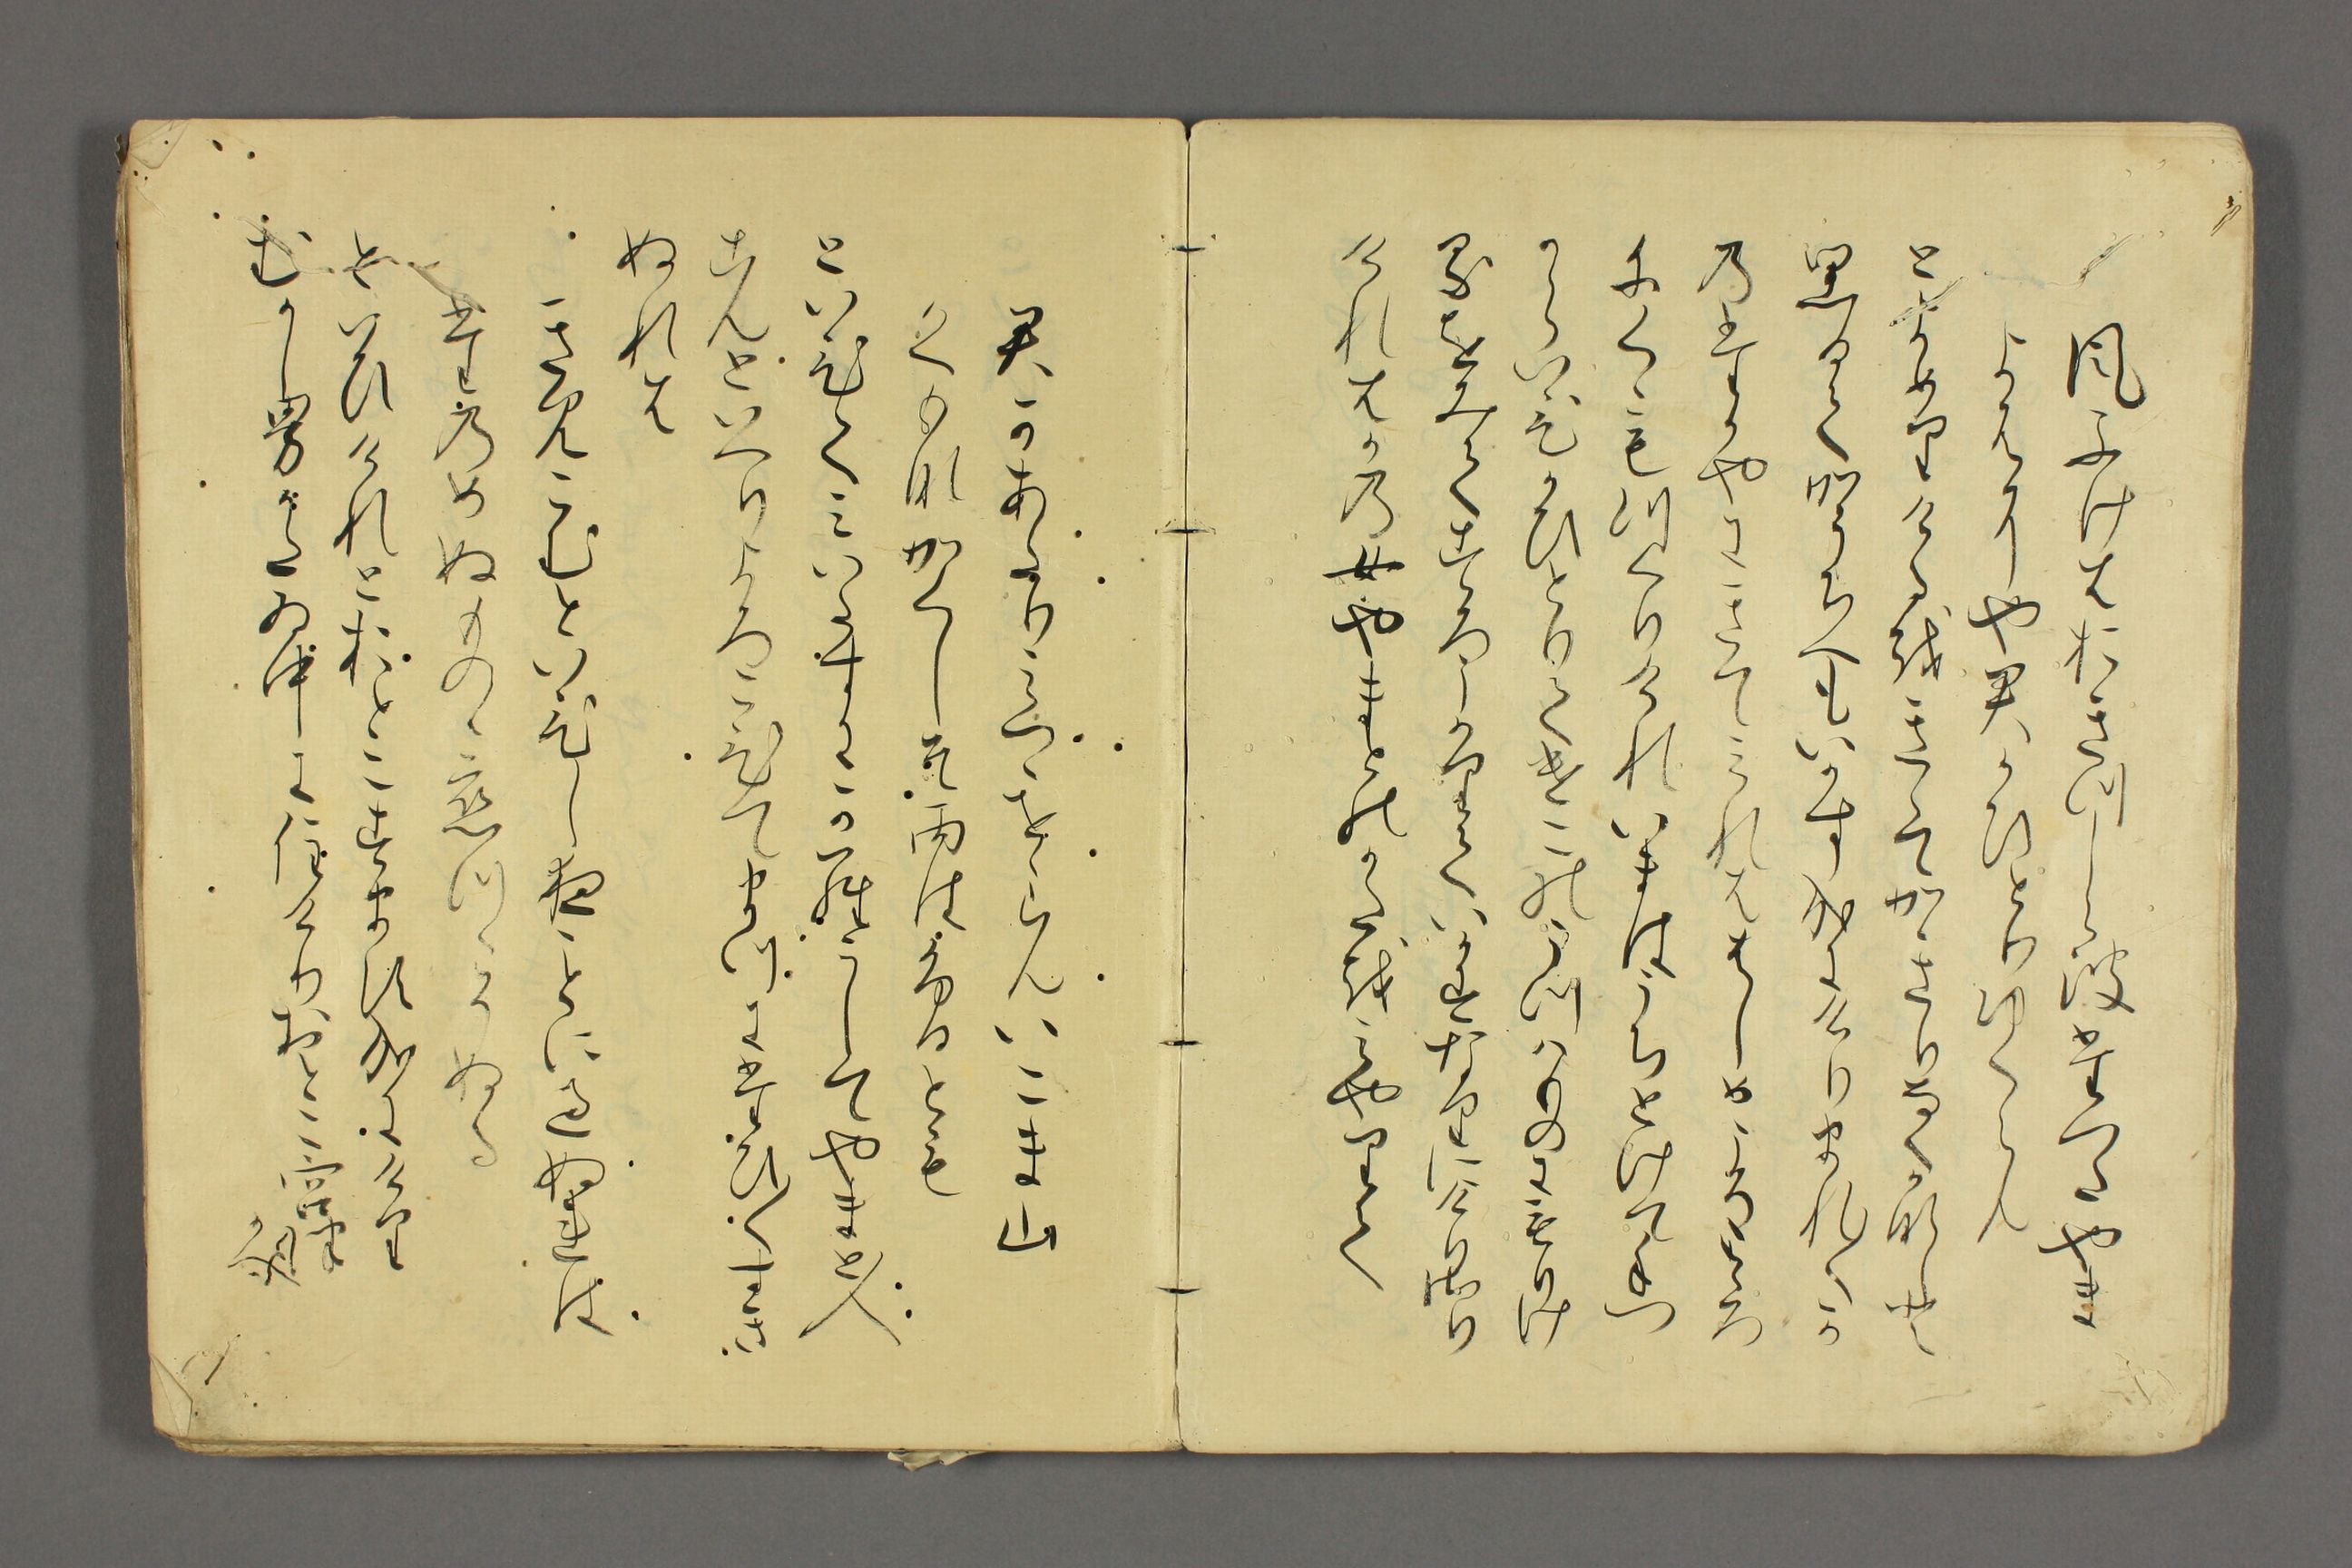 風ふけはおきつ白浪たつた山
よはにや君かひとりこゆらん
とよみけるを聞てかきりなくかなしと
思ひて河内へもいかすなりにけりまれ〱か
の高安にきてみれははしめこそ心に
くくもつくりけれいまはうちとけて
てつからいひかひとりてけこのうつは物に
もりけるをみて心うかりていかすなりに
けれはかの女やまとのかたをみやりて
君かあたりみつつををらんいこま山
雲なかくしそ雨はふるとも
といひてみいたすにからうしてやまと人
こんといへりよろこひてまつにたひ〱過
ぬれは
君こむといひし夜ことに過ぬれは
たのまぬものの恋つつそぬる
といひけれとおとこすますなりにけり
むかし男かたゐ中にすみけりおとこ